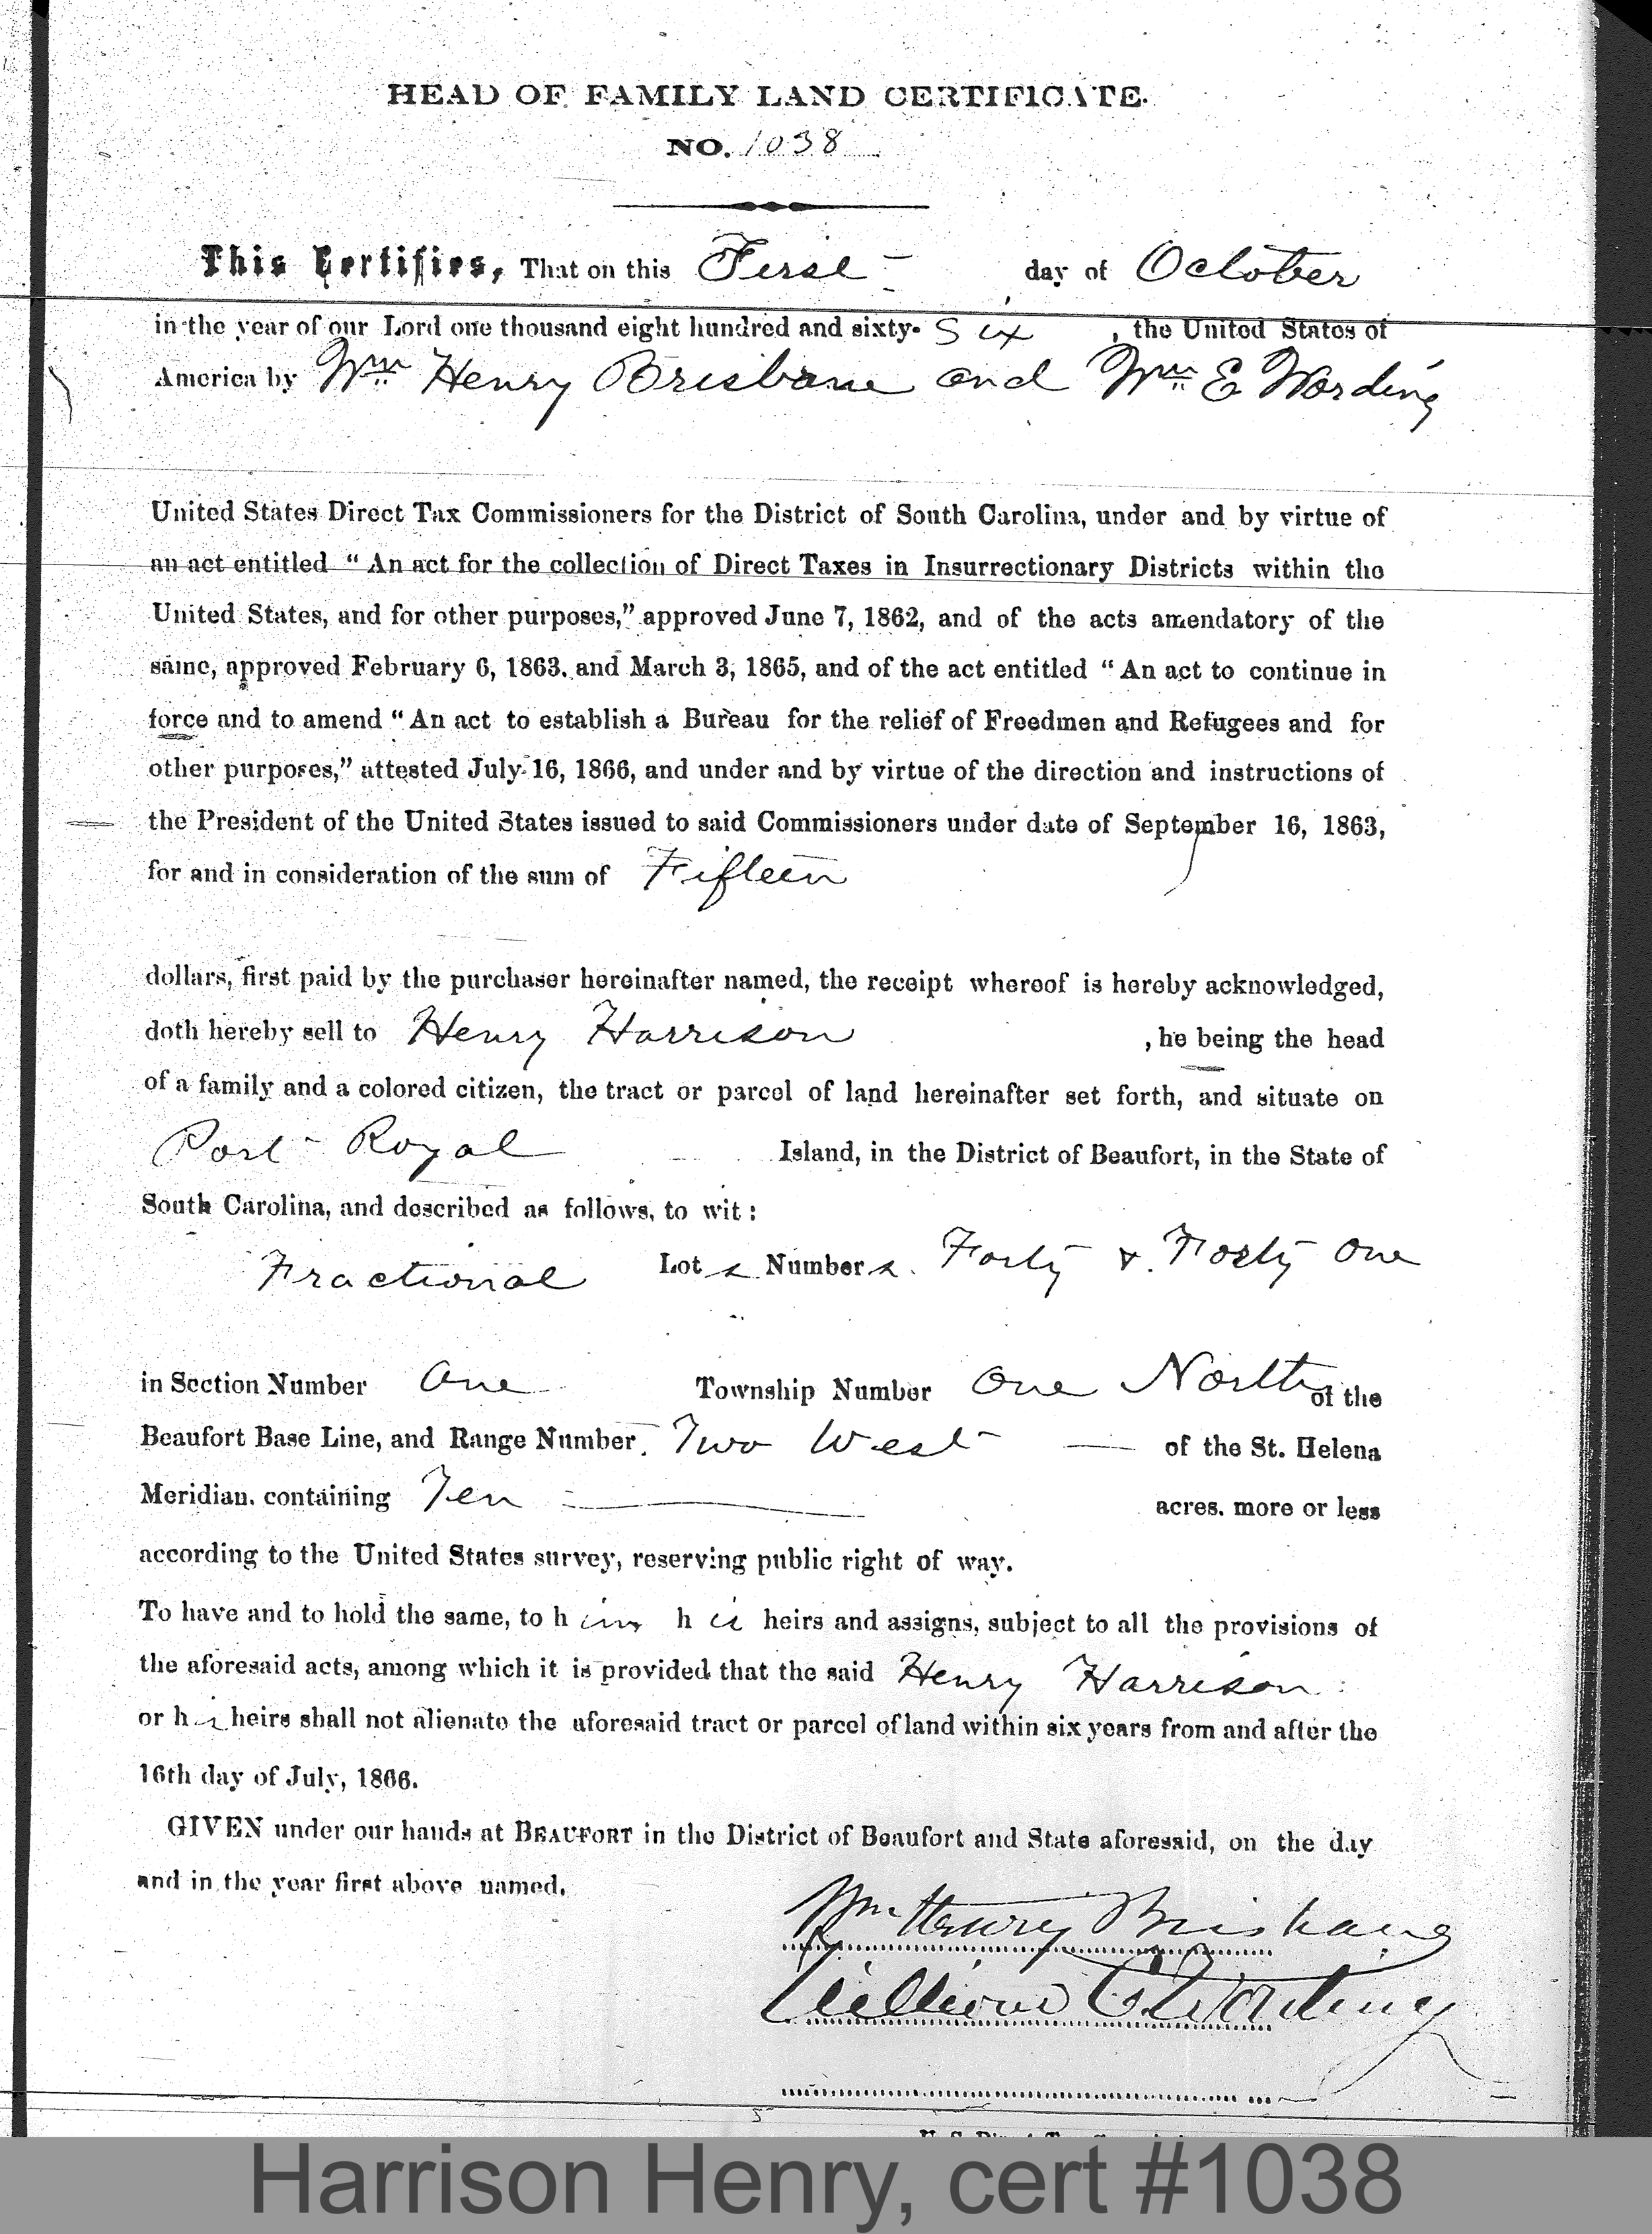 HEAD OF FAMILY LAND CERTIFICATE.
NO. 1038
This Certifies, That on this First day of October
in the year of our Lord one thousand eight hundred and sixty-six, the United States of
America by Wm Henry Brisbane and Wm E Wording
United States Direct Tax Commissioners for the District of South Carolina, under and by virtue of
an act entitled "An act for the collection of Direct Taxes in Insurrectionary Districts within the
United States, and for other purposes," approved June 7, 1862, and of the acts amendatory of the
same, approved February 6, 1863, and March 3, 1865, and of the act entitled "An act to continue in
force and to amend "An act to establish a Bureau for the relief of Freedmen and Refugees and for
other purposes," attested July 16, 1866, and under and by virtue of the direction and instructions of
the President of the United States issued to said Commissioners under date of September 16, 1863,
for and in consideration of the sum of Fifteen
dollars, first paid by the purchaser hereinafter named, the receipt whereof is hereby acknowledged,
doth hereby sell to Henry Harrison, he being the head
of a family and a colored citizen, the tract or parcel of land hereinafter set forth, and situate on
Port Royal Island, in the District of Beaufort, in the State of
South Carolina, and described as follows, to wit:
Fractional Lots Numbers. Forty & Forty One
in Section Number One Township Number One North of the
Beaufort Base Line, and Range Number Two West — of the St. Helena
Meridian, containing Ten — acres, more or less
according to the United States survey, reserving public right of way.
To have and to hold the same, to him his heirs and assigns, subject to all the provisions of
the aforesaid acts, among which it is provided that the said Henry Harrison
or his heirs shall not alienate the aforesaid tract or parcel of land within six years from and after the
16th day of July, 1866.
GIVEN under our hands at BEAUFORT in the District of Beaufort and State aforesaid, on the day
and in the year first above named.
Wm. Henry Brisbane
William E. Wording
Harrison Henry, cert #1038